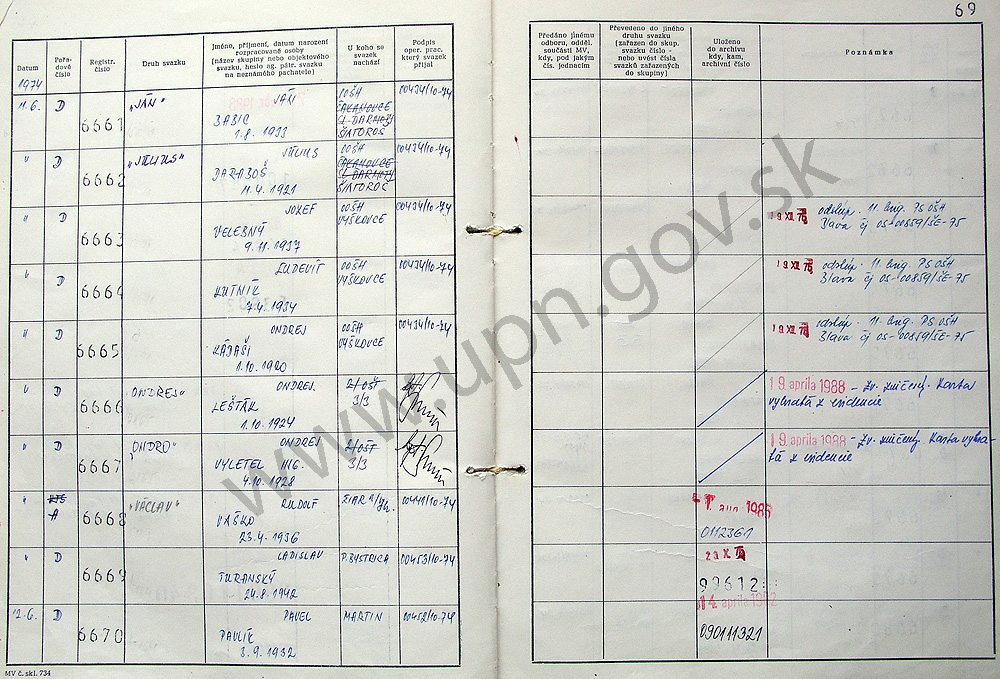 69
Datum
Pořadové číslo
Registr. číslo
Druh svazku
Jméno, příjmení, datum narození
rozpracované osoby
(název skupiny nebo objektového
svazku, heslo ag. pátr. svazku
na neznámého pachatele)
U koho se
svazek
nachází
Podpis
oper. prac.
který svazek
přijal
Předáno jinému
odboru, odděl.
součásti MV,
kdy, pod jakým
čís. jednacím
Převedeno do jiného
druhu svazku
(zařazen do skup.
svazku číslo -
nebo uvést čísla
svazků zařazených
do skupiny)
Uloženo
do archivu
kdy, kam,
archivní číslo
Poznámka
1974
11.6. D 6661 "JÁN" JÁN
BABIC
1.8. 1933
OOŠH
ČAKANOVCE
SL. DARMOTY
ŠIATOROŠ
00434/10-74
" D 6662 "JÚLIUS" JÚLIUS
DARABOŠ
11.4. 1921
OOŠH
ČAKANOVCE
SL. DARMOTY
ŠIATOROŠ
00434/10-74
" D 6663 JOZEF
VELEBNÝ
9.11. 1937
OOŠH
VYŠKOVCE
00434/10-74
19 XII 75 odstúp. 11. brig. PS OŠH
Blava čj OS-00859/ŠE-75
" D 6664 ĽUDEVÍT
KUTNÍK
7.4. 1934
OOŠH
VYŠKOVCE
00434/10-74
19 XII 75 odstúp. 11. brig. PS OŠH
Blava čj OS-00859/ŠE-75
" D 6665 ONDREJ
1.10. 1920
OOŠH
VYŠKOVCE
00434/10-74
19 XII 75 odstúp. 11. brig. PS OŠH
Blava čj OS-00859/ŠE-75
" D 6666 "ONDREJ" ONDREJ
LEŠTÁK
1.10. 1924
2/OŠT
3/3
19. aprila 1988 - Zv. zničený. Karta
vybratá z evidencie
" D 6667 "ONDRO" ONDREJ
VYLETEL ING.
4.10. 1928
2/OŠT
3/3
19. aprila 1988 - Zv. zničený. Karta vybra-
tá z evidencie
" A 6668 "VÁCLAV" RUDOLF
VAŠKO
23.4. 1936
ŽIAR n/Hr.
00441/10-74
0112361
" D 6669 LADISLAV
TURANSKÝ
24.8. 1942
P. BYSTRICA
00453/10-74
99612
12.6. D 6670 PAVEL
PAVLÍK
3.9. 1932
MARTIN
00452/10-74
14. aprila
090111321
MV č. skl. 734
www.upn.gov.sk